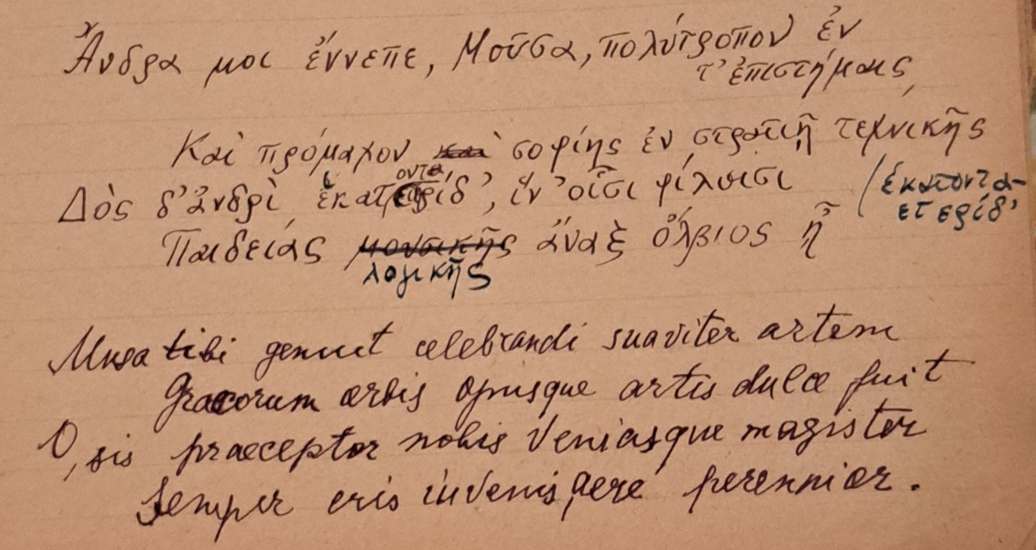 Ἄνδρα μοι ἔννεπε, Μοῦσα, πολύτροπον ἐν
τ' ἐπιστήμαις,
Καὶ πρόμαχον καὶ σοφίης ἐν στρατιῇ τεχνικῆς
Δὸς δ' ἀνδρὶ ἑκατονταετηρίδ', ἵν' οἷσι φίλοισι
(ἑκατοντα-
ετερίδ'
Παιδείας μουσικῆς ἄναξ ὄλβιος ᾖ
λογικῆς
Musa tibi genuit celebrandi suaviter artem
Graecorum orbis opusque artis dulce fuit
O, sis praeceptor nobis veniasque magister
Semper eris iuvenis, aere perennior.